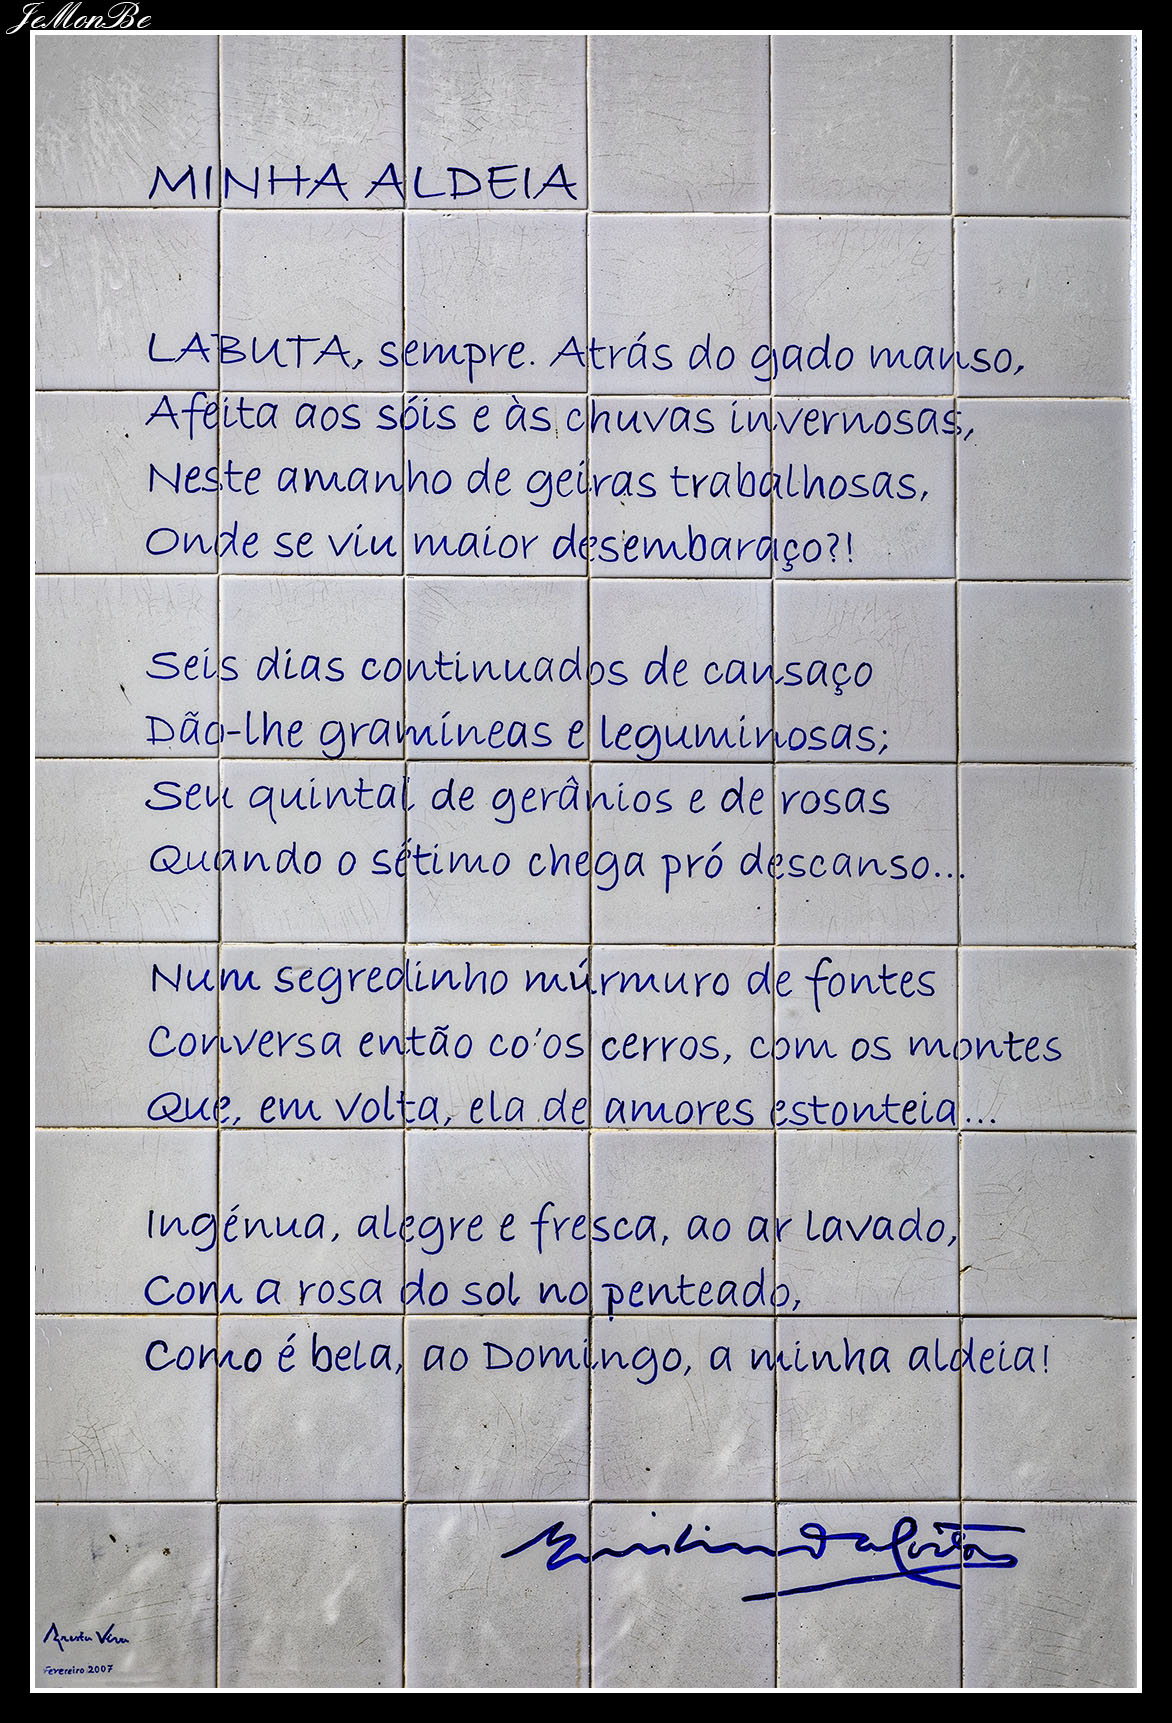 JeMonBe
MINHA ALDEIA
LABUTA, sempre. Atrás do gado manso,
Afeita aos sóis e às chuvas invernosas,
Neste amanho de geiras trabalhosas,
Onde se viu maior desembaraço?!
Seis dias continuados de cansaço
Dão-lhe gramíneas e leguminosas;
Seu quintal de gerânios e de rosas
Quando o sétimo chega pró descanso...
Num segredinho múrmuro de fontes
Conversa então co'os cerros, com os montes
Que, em volta, ela de amores estonteia...
Ingénua, alegre e fresca, ao ar lavado,
Com a rosa do sol no penteado,
Como é bela, ao Domingo, a minha aldeia!
Emiliano da Costa
Fevereiro 2007